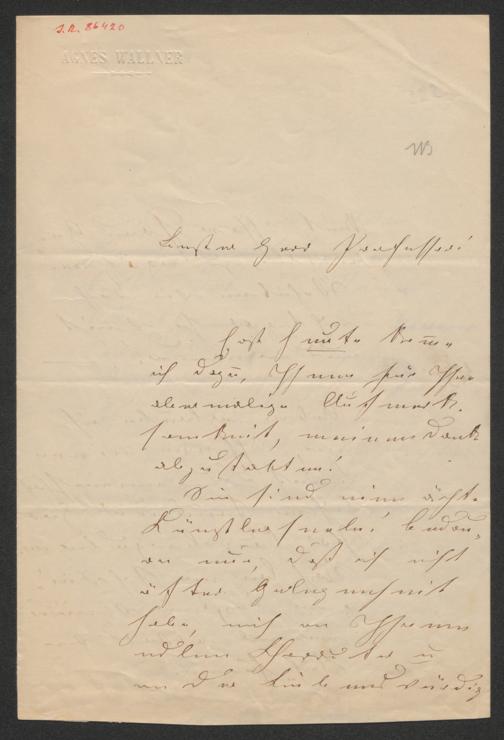 J.N. 86420
AGNES WALLNER
Bester Herr Professor!
Erst heute komme
ich dazu, Ihnen für Ihre
abermalige Aufmerk-
samkeit, meinen Dank
abzustatten!
Sie sind eine ächte
Künstlerseele! bedau-
re nur, daß ich nicht
öfter Gelegenheit
habe, mich an Ihrem
edlen Charakter u
an der Liebenswürdig